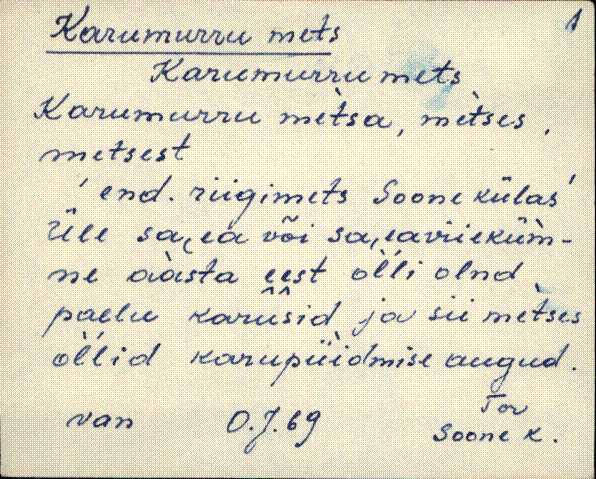 Karumurru mets 1
Karumurru mèts,
Karumurru mètsa, mètses,
metsest
'end. riigimets Soone külas'
Üle sa,ea või sa,eavrieküm̀-
ne aàsta eest òlli olnd
paelu karusid ja sii mètses
òllid karupüìdmise augud.
van O.J.69 Tor
Soone k.